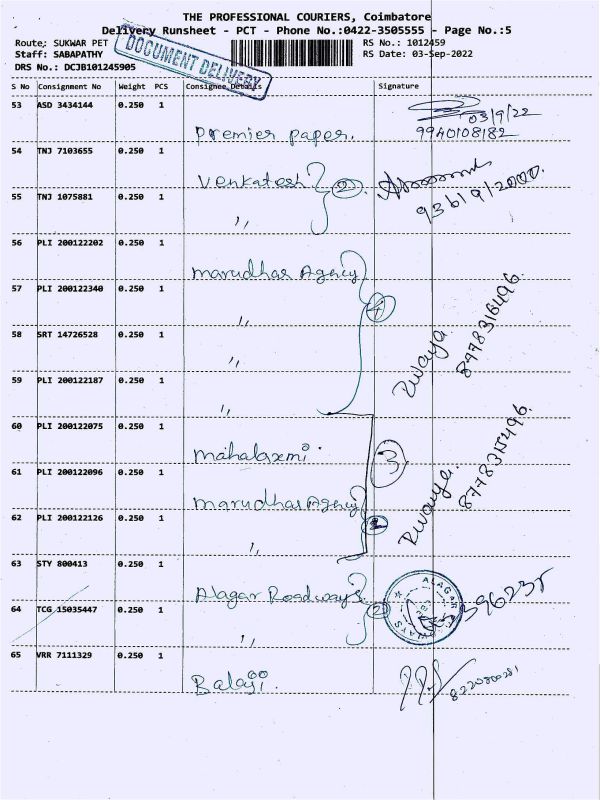 THE PROFESSIONAL COURIERS, Coimbatore
Delivery Runsheet - PCT - Phone No.:0422-3505555 - Page No.:5
Route: SUKWAR PET
RS No.: 1012459
Staff: SABAPATHY
RS Date: 03-Sep-2022
DRS No.: DCJB101245905
DOCUMENT DELIVERY
S No Consignment No Weight PCS Consignee Details Signature
53 ASD 3434144 0.250 1
03/9/22
Premier paper. 9940108182
54 TNJ 7103655 0.250 1
Venkatesh 2
55 TNJ 1075881 0.250 1
,,
56 PLI 200122202 0.250 1
Marudhar Agency
57 PLI 200122340 0.250 1
4
,,
58 SRT 14726528 0.250 1
,,
59 PLI 200122187 0.250 1
,,
60 PLI 200122075 0.250 1
Mahalaxmi 3
61 PLI 200122096 0.250 1
Marudhar Agency
62 PLI 200122126 0.250 1
,,
63 STY 800413 0.250 1
Alagar Roadways
64 TCG 15035447 0.250 1
2
ALAGAR
,,
65 VRR 7111329 0.250 1
Balaji.